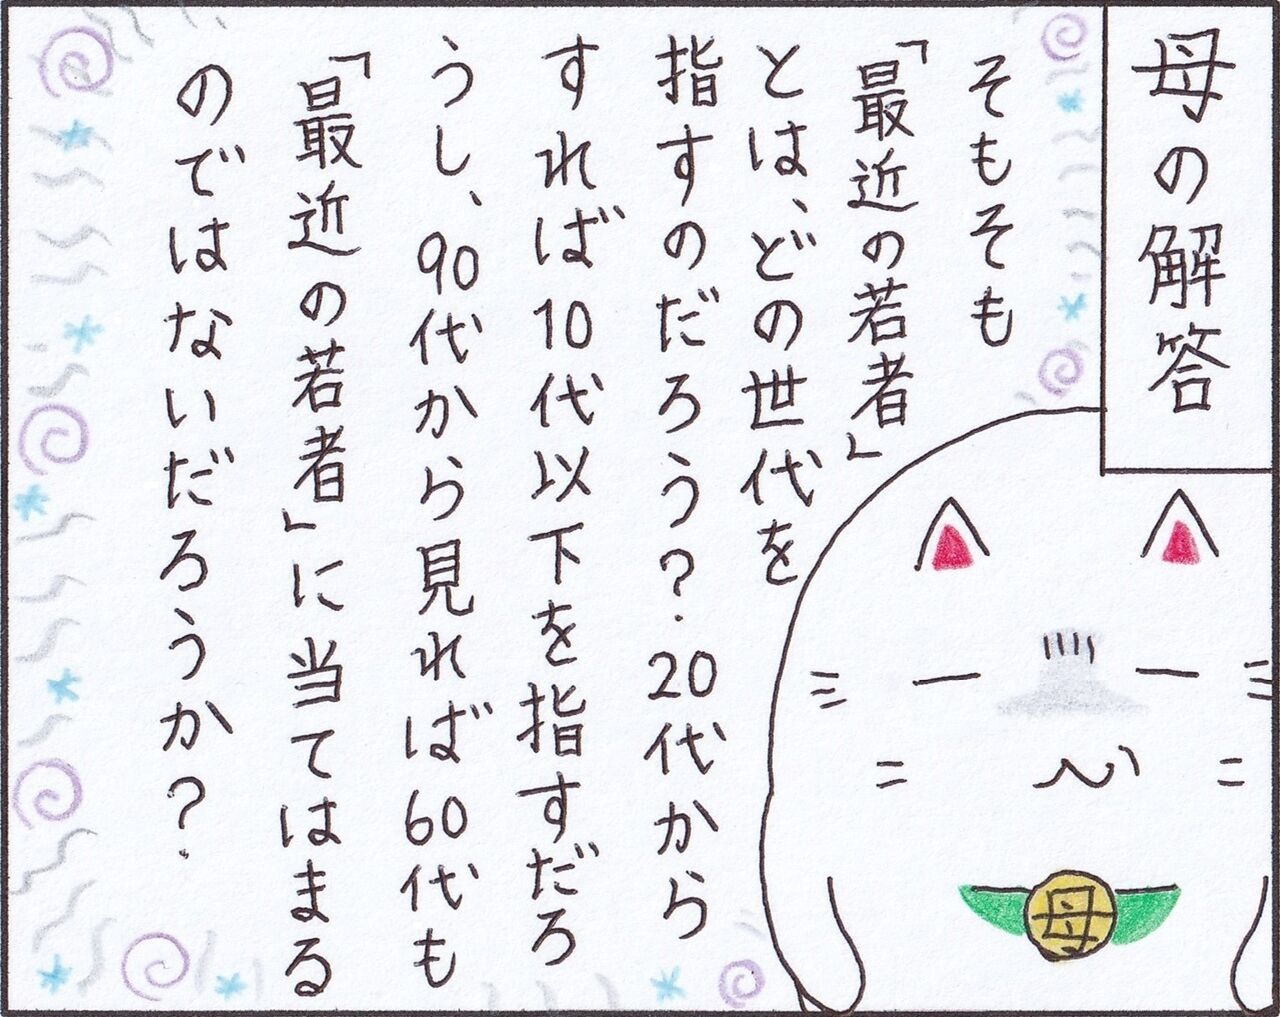 母の解答
そもそも
「最近の若者」
とは、どの世代を
指すのだろう?20代から
すれば10代以下を指すだろ
うし、90代から見れば60代も
「最近の若者」に当てはまる
のではないだろうか?
母